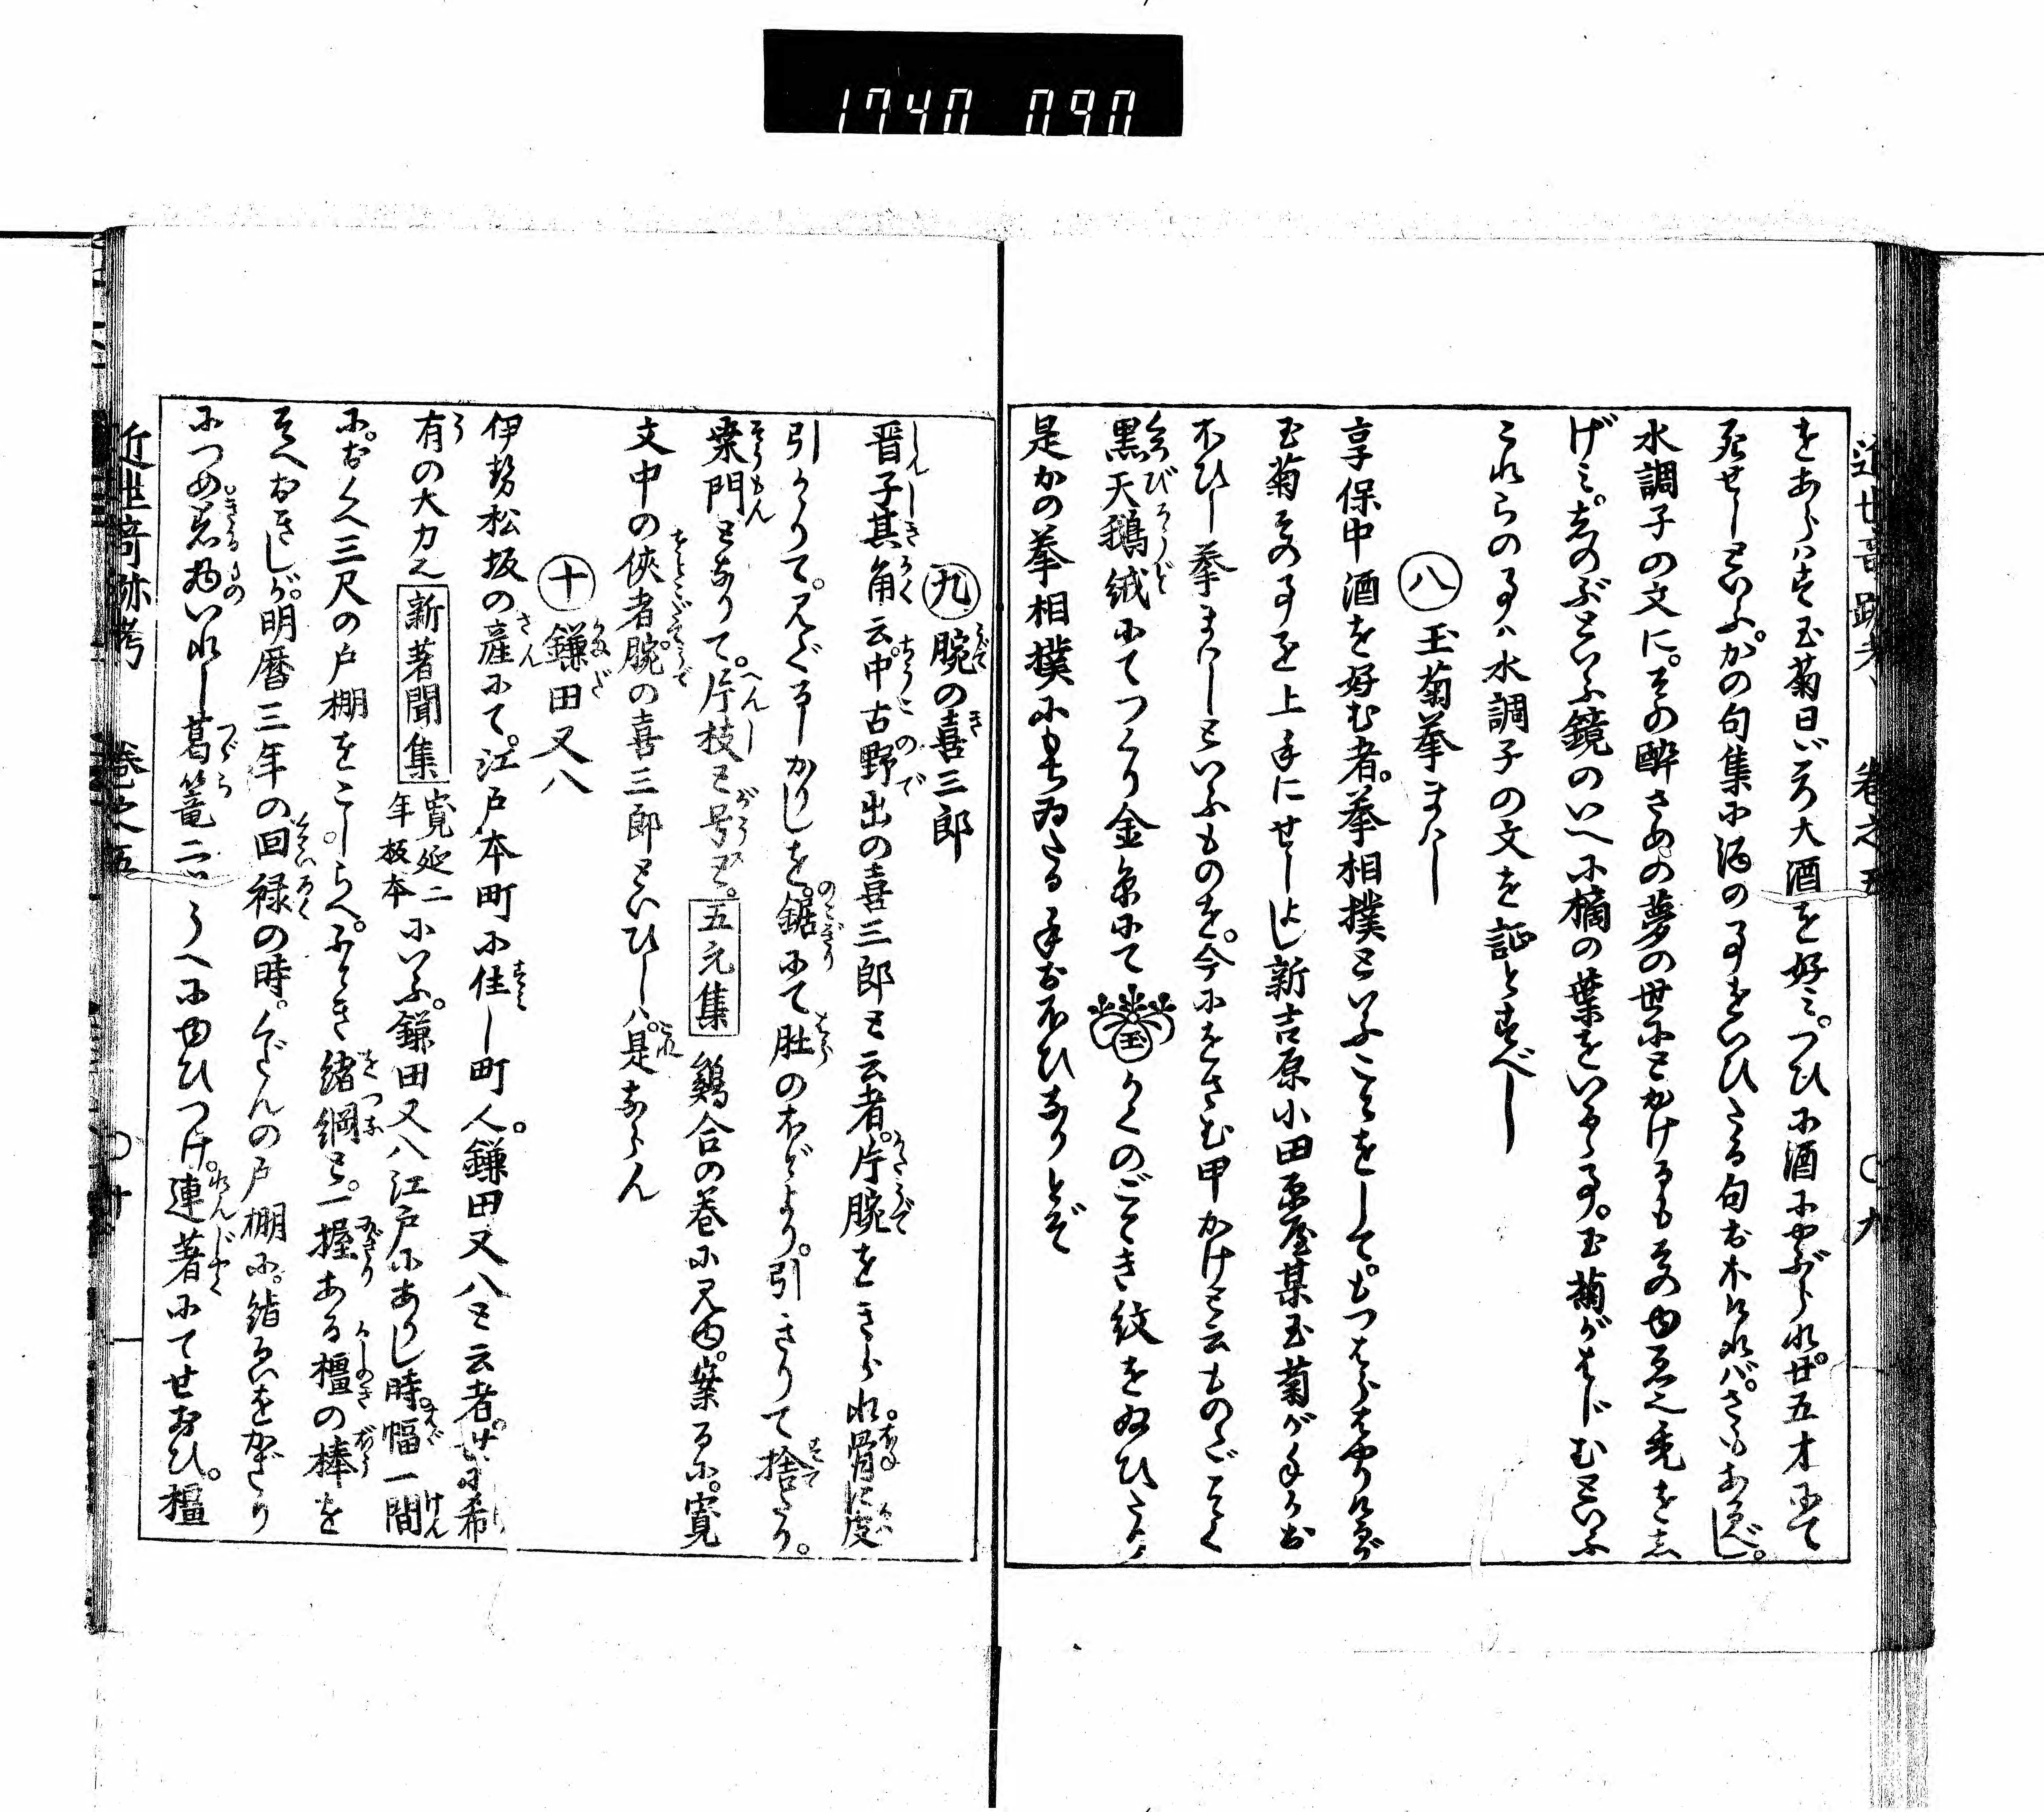 1740 090
近世奇跡考 巻之五 ○九
をあらはす玉菊日ごろ大酒を好みつひに酒にやぶられ廿五才にて
死せしといふ。かの句集に酒の事をいひたる句おほければさもあるべし。
水調子の文に。その酔さめの夢の世にとかけるもそのゆゑ也兎をし
げみ。しのぶといふ鏡のいへに橘の葉をいたる事。玉菊がはじむといふ
これらの事は水調子の文を証とすべし
八 玉菊拳まはし
享保中酒を好む者。拳相撲といふことをして。もつはらはやりけるが
玉菊その事を上手にせしよし新吉原小田原屋某玉菊が手にお
ほひし拳まはしといふものを。今にをさむ甲かけと云ものゝごとく
黒天鵝絨にてつくり金糸にて 玉 かくのごとき紋をぬひたり
是かの拳相撲にもちゐたる手おほひなりとぞ
九 腕の喜三郎
晋子其角云中古野出の喜三郎と云者。片腕をきられ。骨に皮
引かゝりて。見ぐるしかりしを。鋸にて肚のほどより。引きりて捨たり。
桒門となりて。片枝と号ス。 五元集 鶏合の巻に見ゆ。案るに。寛
文中の侠者腕の喜三郎といひしは。是ならん
十 鎌田又八
伊勢松坂の産にて。江戸本町に住し町人。鎌田又八と云者。世に希
有の大力也 新著聞集 寛延二年板本 にいふ。鎌田又八江戸にありし時。幅一間
に。おくへ三尺の戸棚をこしらへ。ふとき緒綱と。一握ある橿の棒を
そへおきしが。明暦三年の回禄の時。くだんの戸棚に。緒るいをかぎり
につめ。着物いれし葛篭二ツうへにゆひつけ。連著にてせおひ。橿
近世奇跡考 巻之五 ○十